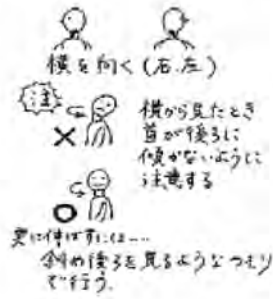 横を向く(右、左)
注
横から見たとき
首が後ろに
傾かないように
注意する
×
○
更に伸ばすには……
斜め後ろを見るようなつもり
で行う.